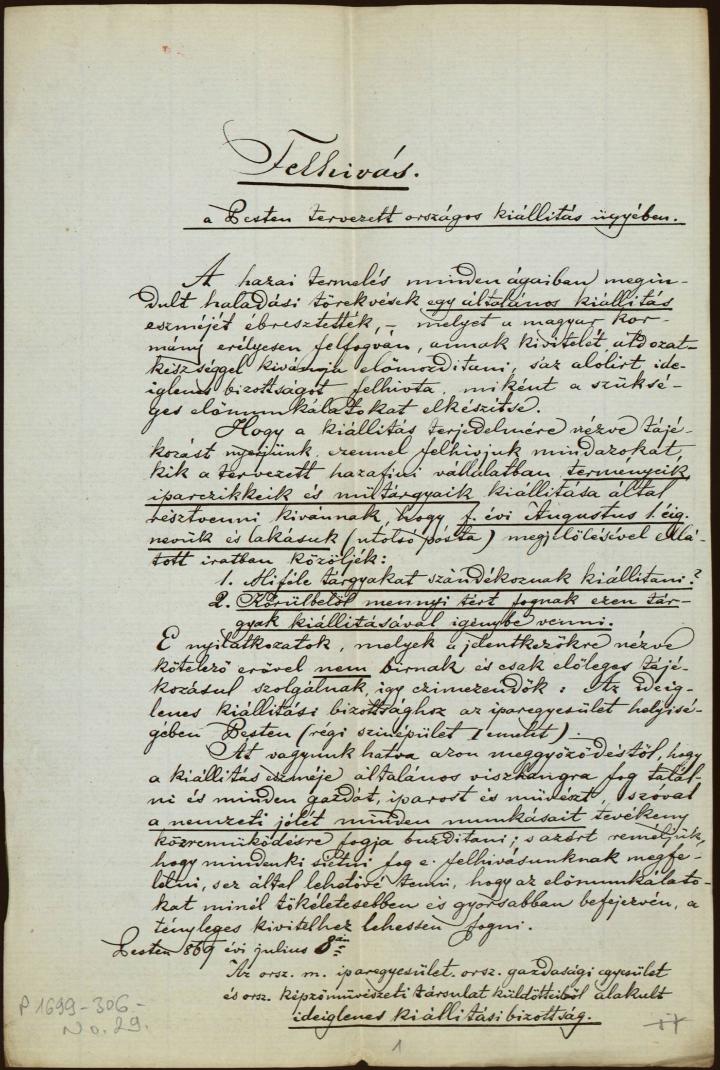 Felhivás.
a Pesten tervezett országos kiállitás ügyében.
A hazai termelés minden ágaiban megin-
dult haladási törekvések egy általános kiállitás
eszméjét ébresztették, – melyet a magyar kor-
mány erélyesen felfogván, annak kivitelét áldozat-
készséggel kivánja előmozditani, s az alólirt, ide-
iglenes bizottságot felhivta, miként a szüksé-
ges előmunkálatokat elkészitse.
Hogy a kiállitás terjedelmére nézve tájé-
kozást nyerjünk, ezennel felhivjuk mindazokat,
kik a tervezett hazafiui vállalatban terményeik,
iparczikkeik és műtárgyaik kiállitása által
résztvenni kivánnak, hogy f. évi Augustus 1. éig
nevük és lakásuk (utolsó pósta) megjelölésével ellá-
tott iratban közöljék:
1. Miféle tárgyakat szándékoznak kiállitani?
2. Körülbelöl mennyi tért fognak ezen tár-
gyak kiállitásával igénybe venni.
E nyilatkozatok, melyek a jelentkezőkre nézve
kötelező erővel nem birnak és csak előleges tájé-
kozásul szolgálnak, igy czimezendők: Az ideig-
lenes kiállitási bizottsághoz az iparegyesület helyisé-
gében Pesten (régi szinépület I emelet).
Át vagyunk hatva azon meggyőződéstől, hogy
a kiállitás eszméje általános viszhangra fog talál-
ni és minden gazdát, iparost és művészt, szóval
a nemzeti jólét minden munkásait, tevékeny
közreműködésre fogja buzditani; s azért reméljük,
hogy mindenki sietni fog e felhivásunknak megfe-
lelni, s ez által lehetővé tenni, hogy az előmunkálato-
kat minél tökéletesebben és gyorsabban befejezvén, a
tényleges kivitelhez lehessen fogni.
Pesten 869 évi julius 8án
Az orsz. m. iparegyesület. orsz. gazdasági egyesület
és orsz. képzőművészeti társulat küldötteiből alakult
ideiglenes kiállitási bizottság.
P 1699-306.-
No. 29.
1